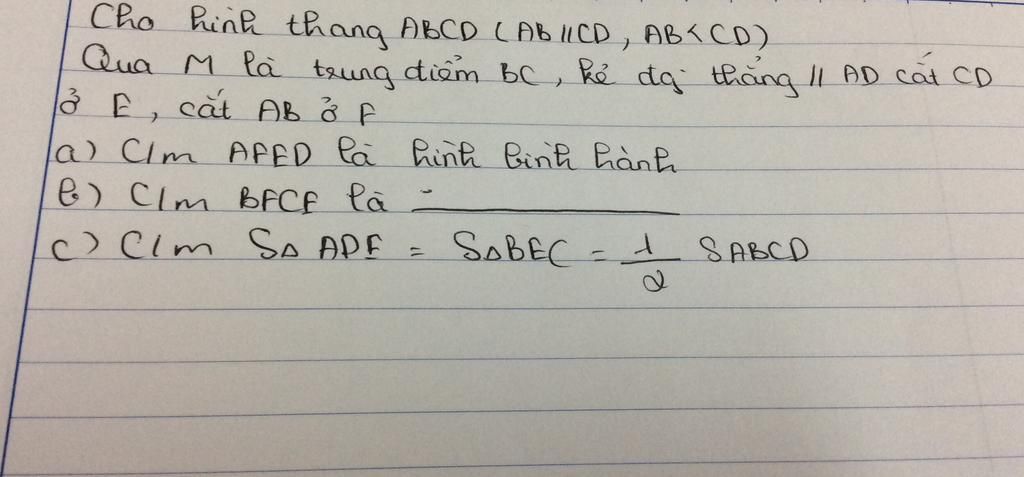 Cho hình thang ABCD (AB//CD, AB<CD)
Qua M là trung điểm BC, kẻ đg thẳng // AD cắt CD
ở E, cắt AB ở F
a) C/m AFED là hình bình hành
b) C/m BFCE là -
c) C/m SΔ ADE = SΔBEC = 1/2 SABCD